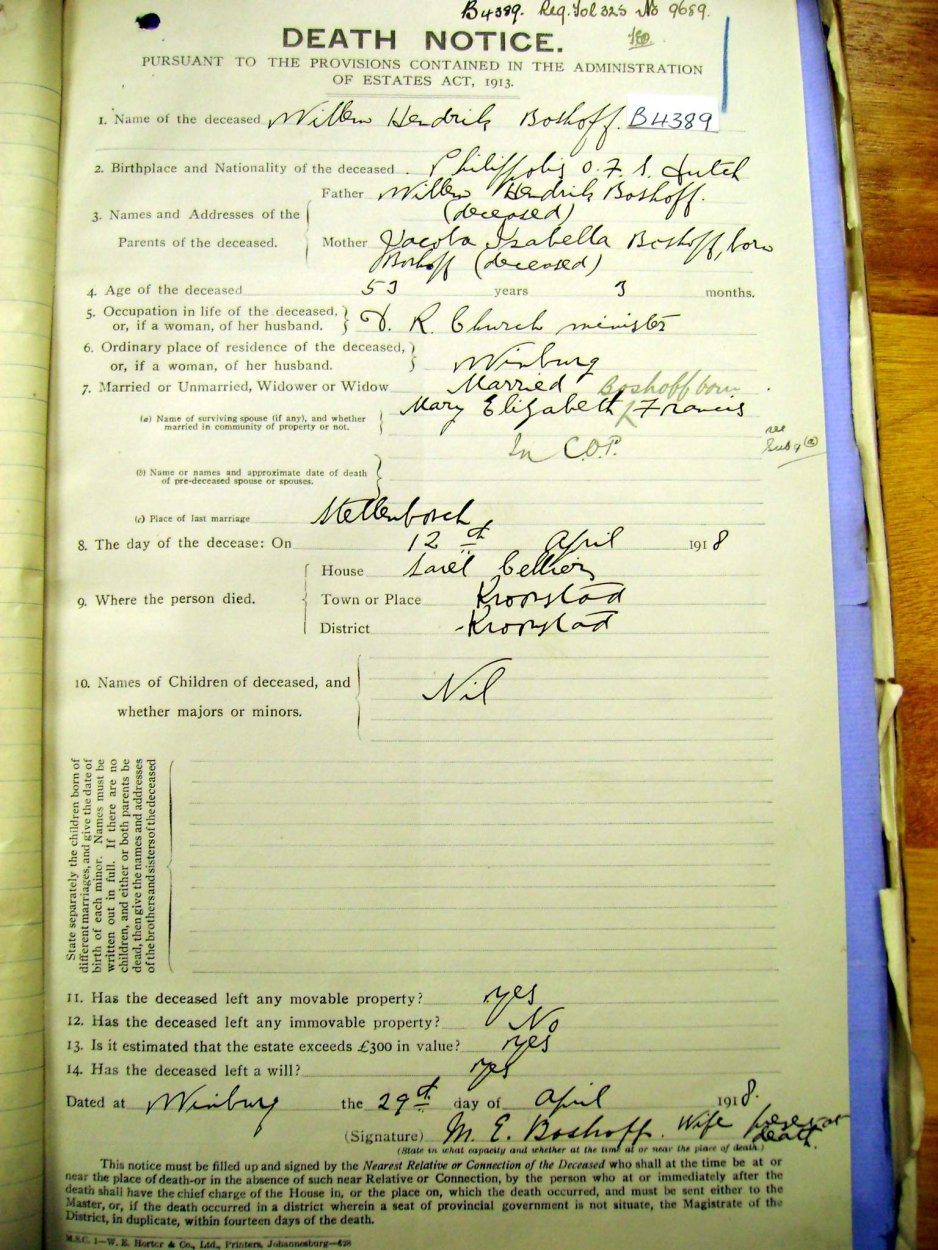 B4389. Reg. Fol 325 No 9689.
DEATH NOTICE.
PURSUANT TO THE PROVISIONS CONTAINED IN THE ADMINISTRATION
OF ESTATES ACT, 1913.
1. Name of the deceased Willem Hendrik Boshoff. B4389
2. Birthplace and Nationality of the deceased Philippolis O.F.S. Dutch
Father Willem Hendrik Boshoff.
3. Names and Addresses of the (deceased)
Parents of the deceased. Mother Jacoba Isabella Boshoff, born
Boshoff (deceased)
4. Age of the deceased 53 years 3 months.
5. Occupation in life of the deceased,
or, if a woman, of her husband. D. R. Church minister
6. Ordinary place of residence of the deceased,
or, if a woman, of her husband. Winburg
7. Married or Unmarried, Widower or Widow Married Boshoff born
(a) Name of surviving spouse (if any), and whether
married in community of property or not. Mary Elizabeth Francis
In C.O.P. see
(b) Name or names and approximate date of death
of pre-deceased spouse or spouses.
(c) Place of last marriage Stellenbosch
8. The day of the decease: On 12th April 1918
House Sarel Cellier
9. Where the person died. Town or Place Kroonstad
District Kroonstad
10. Names of Children of deceased, and
whether majors or minors. Nil
State separately the children born of
different marriages, and give the date of
birth of each minor. Names must be
written out in full. If there are no
children, and either or both parents be
dead, then give the names and addresses
of the brothers and sisters of the deceased
11. Has the deceased left any movable property? yes
12. Has the deceased left any immovable property? No
13. Is it estimated that the estate exceeds £300 in value? yes
14. Has the deceased left a will? yes
Dated at Winburg the 29th day of April 1918.
(Signature) M. E. Boshoff. Wife present at
death.
(State in what capacity and whether at the time at or near the place of death.)
This notice must be filled up and signed by the Nearest Relative or Connection of the Deceased who shall at the time be at or
near the place of death-or in the absence of such near Relative or Connection, by the person who at or immediately after the
death shall have the chief charge of the House in, or the place on, which the death occurred, and must be sent either to the
Master, or, if the death occurred in a district wherein a seat of provincial government is not situate, the Magistrate of the
District, in duplicate, within fourteen days of the death.
M.S.C. 1—W. E. Horter & Co., Ltd., Printers, Johannesburg—